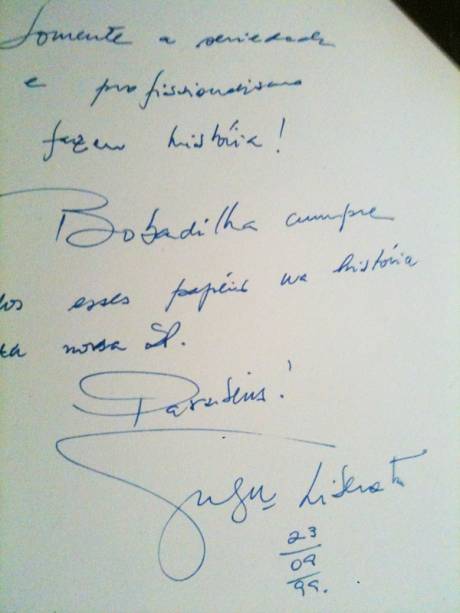 Somente a seriedade
e profissionalismo
fazem história!
Bobadilha cumpre
dos esses papéis na história
ta nossa SP.
Parabéns!
Liberato
23
09
99.